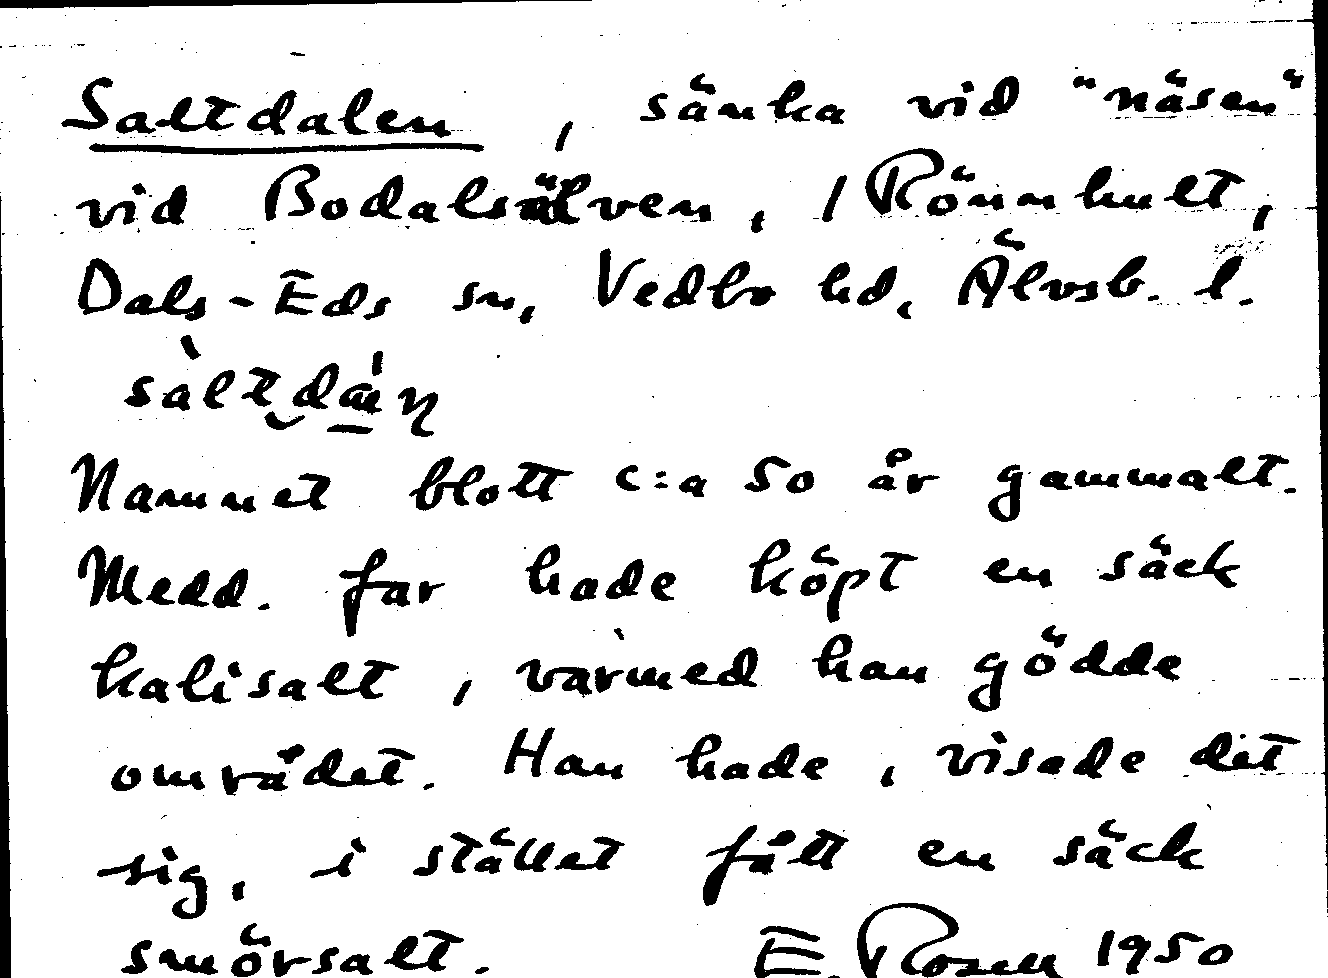 Saltdalen, sänka vid "näsen"
vid Bodalsälven, / Rönnhult,
Dals-Eds sn, Vedbo hd, Älvsb. l.
Namnet blott c:a 50 år gammalt.
Medd. far hade köpt en säck
kalisalt, varmed han gödde
området. Han hade, visade det
sig, i stället fått en säck
smörsalt. E. Rosell 1950